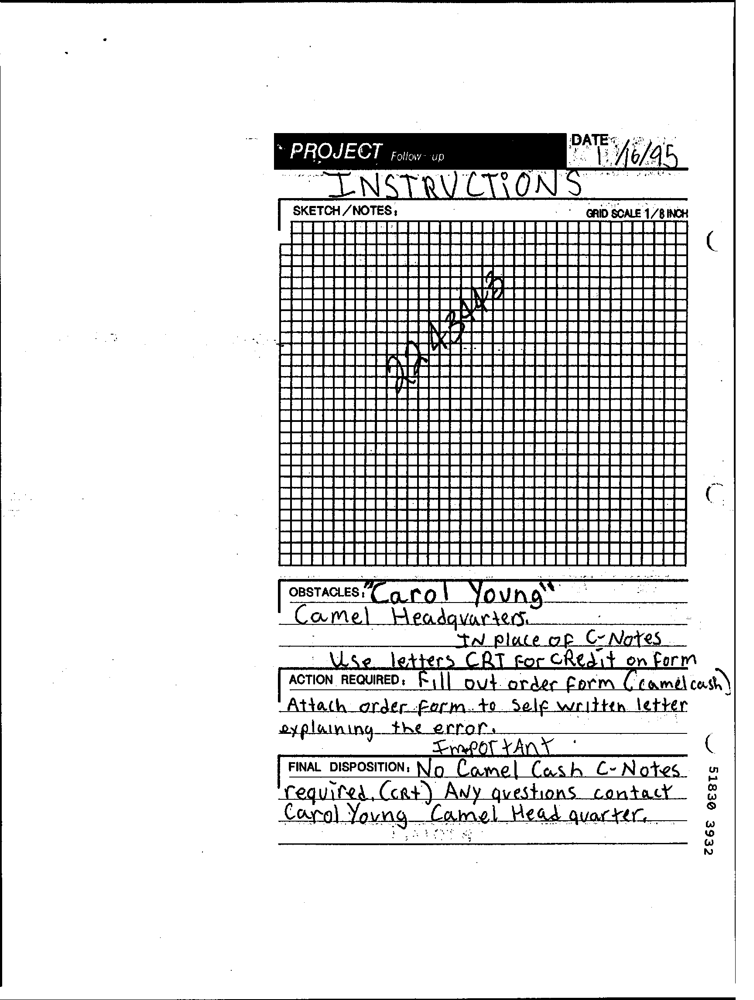 PROJECT Follow-up
DATE 11/16/95
INSTRUCTIONS
SKETCH/NOTES:
GRID SCALE 1/8 INCH
2243443
OBSTACLES: "Carol Young"
Camel Headquarters.
IN place of C-Notes
Use letters CRT for CRedit on form
ACTION REQUIRED: Fill out order form (camelcash)
Attach order form to self written letter
explaining the error.
ImpOrtAnT
FINAL DISPOSITION: No Camel Cash C-Notes
required. (CRt) ANy questions contact
Carol Young Camel Head quarter.
51830 3932